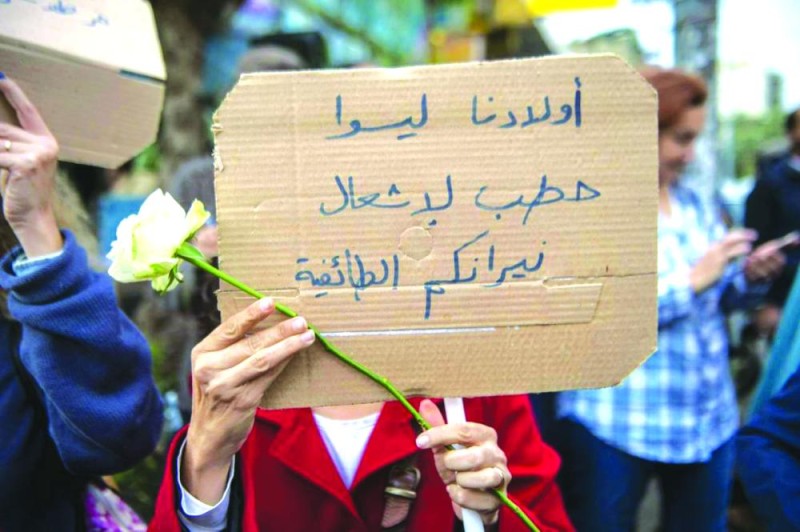 أولادنا ليسوا
حطب لإشعال
نيرانكم الطائفية